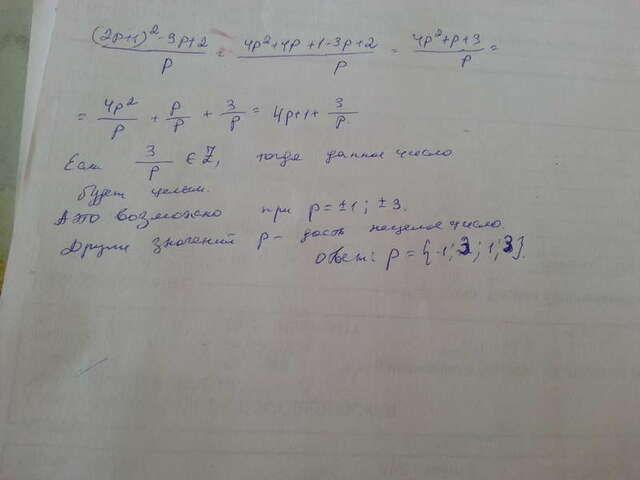 (2p+1)²-3p+2 / p = 4p²+4p+1-3p+2 / p = 4p²+p+3 / p =
= 4p²/p + p/p + 3/p = 4p+1+ 3/p.
Если 3/p ∈ Z, тогда данное число
будет целым.
А это возможно при p=±1; ±3.
Други значений p- дасть нецелое число.
Ответ: p = {-1; 3; 1; 3}.